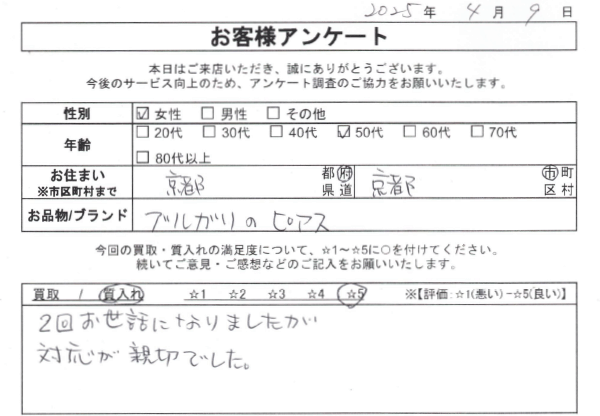 2025年 4月 9日
お客様アンケート
本日はご来店いただき、誠にありがとうございます。
今後のサービス向上のため、アンケート調査のご協力をお願いいたします。
性別 ☑女性 □男性 □その他
年齢 □20代 □30代 □40代 ☑50代 □60代 □70代
□80代以上
お住まい ※市区町村まで 京都 都府県道 京都 市町区村
お品物/ブランド ブルガリの ピアス
今回の買取・質入れの満足度について、☆1～☆5に○を付けてください。
続いてご意見・ご感想などのご記入をお願いいたします。
買取 / 質入れ ☆1 ☆2 ☆3 ☆4 ☆5 ※【評価:☆1(悪い)－☆5(良い)】
2回お世話になりましたが
対応が親切でした。